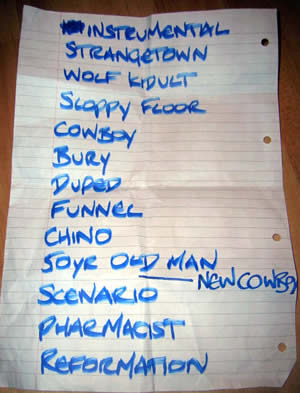 INSTRUMENTAL
STRANGETOWN
WOLF KIDULT
SLOPPY FLOOR
COWBOY
BURY
DUPED
FUNNEL
CHINO
50YR OLD MAN
NEW COWBOY
SCENARIO
PHARMACIST
REFORMATION